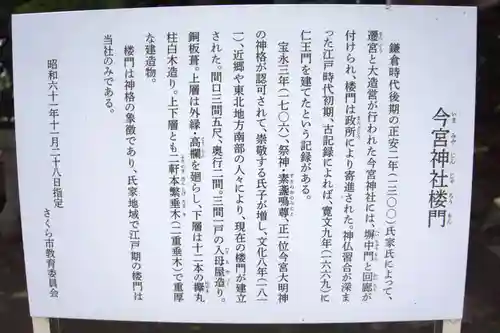 今宮神社楼門
いまみやじんじゃろうもん
鎌倉時代後期の正安二年(一三〇〇)氏家氏によって、
遷宮と大造営が行われた今宮神社には、塀中門と回廊が
付けられ、楼門は政所により寄進された。神仏習合が深ま
った江戸時代初期、古記録によれば、寛文九年(一六六九)に
仁王門を建てたという記録がある。
宝永三年(一七〇六)、祭神・素盞鳴尊、正一位今宮大明神
の神格が認可されて、崇敬する氏子が増し、文化八年(一八一
一)、近郷や東北地方南部の人々により、現在の楼門が建立
された。間口三間五尺、奥行二間。三間一戸の入母屋造り。
銅板葺。上層は外縁・高欄を廻らし、下層は十二本の欅丸
柱白木造り。上下層とも二軒本繁垂木(二重垂木)で重厚
な建造物。
楼門は神格の象徴であり、氏家地域で江戸期の楼門は
当社のみである。
昭和六十一年十一月二十八日指定
さくら市教育委員会